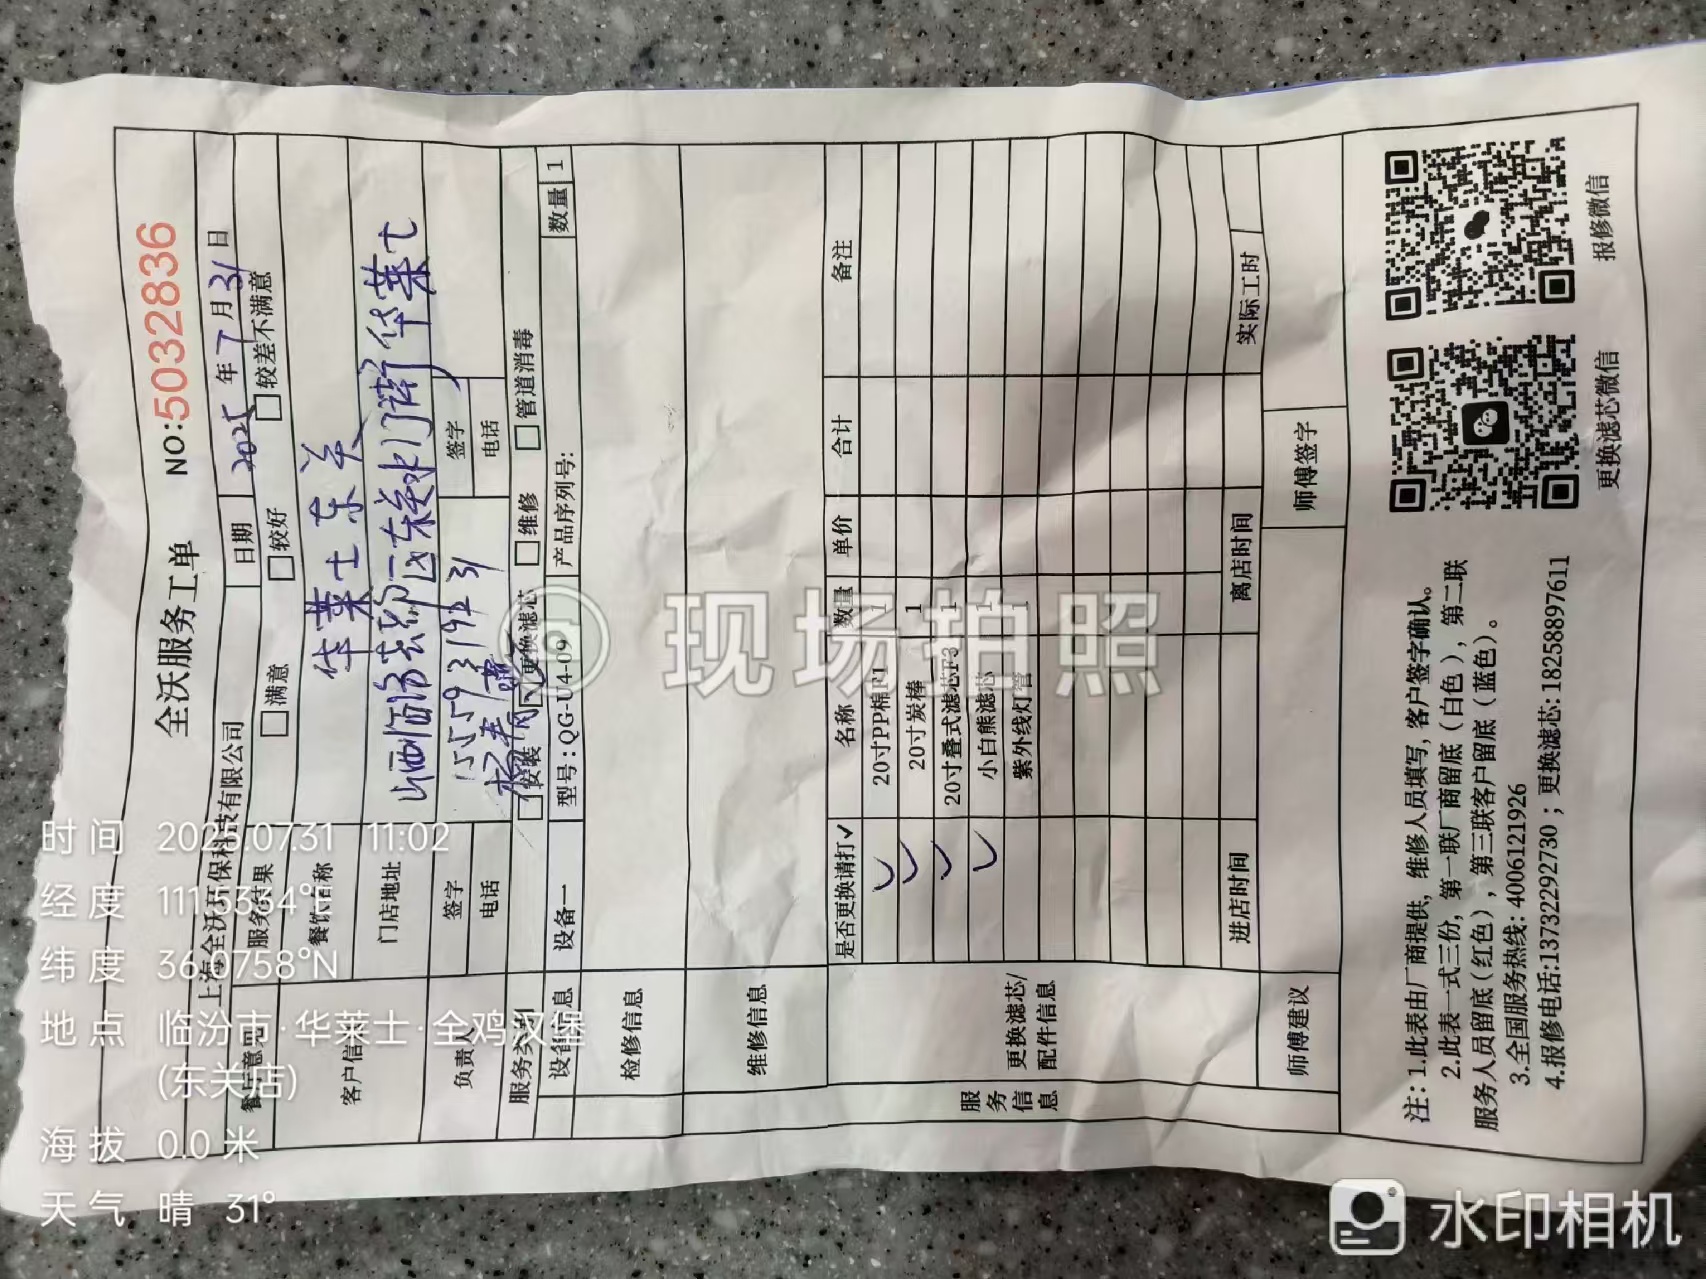 全沃服务工单 NO:5032836
上海全沃环保科技有限公司 日期 2025年7月31日
餐厅意见 服务结果 □满意 □较好 □较差不满意
客户信息 餐饮名称 华莱士东关
门店地址 山西临汾尧都区东关 华莱士
负责人 签字 签字
电话 15593119231 电话
服务类别 □安装 ☑更换滤芯 □维修 □管道消毒
设备信息 设备一 型号:QG-U4-09 产品序列号: 数量 1
检修信息
维修信息
服务信息
更换滤芯/配件信息
是否更换请打✓ 名称 数量 单价 合计 备注
✓ 20寸PP棉F1 1
✓ 20寸炭棒 1
✓ 20寸叠式滤芯F3 1
✓ 小白熊滤芯 1
紫外线灯管 1
进店时间 离店时间 实际工时
师傅建议 师傅签字
注:1.此表由厂商提供,维修人员填写,客户签字确认。
2.此表一式三份,第一联厂商留底(白色),第二联
服务人员留底(红色),第三联客户留底(蓝色)。
3.全国服务热线:4006121926
4.报修电话:13732292730;更换滤芯:18258897611
更换滤芯微信 报修微信
现场拍照
时间 2025.07.31 11:02
经度
纬度 36.0758°N
地点 临汾市·华莱士·全鸡汉堡
(东关店)
海拔 0.0米
天气 晴 31°
水印相机